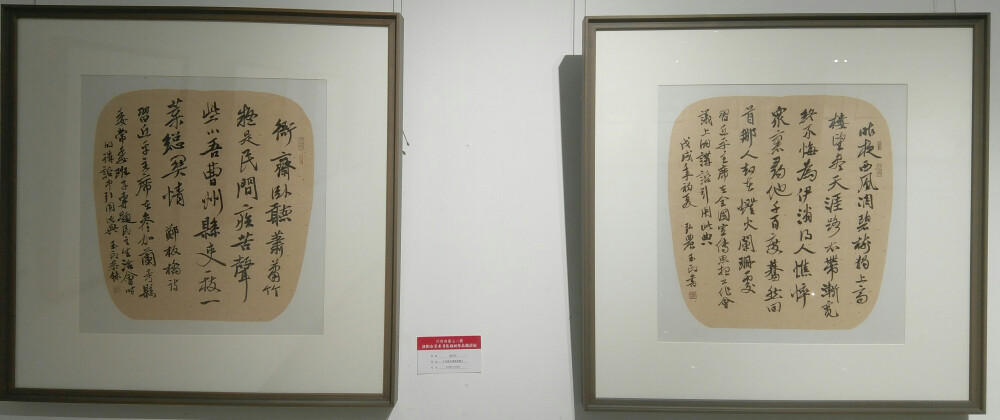 衙齋卧聽蕭蕭竹
疑是民間疾苦聲
些小吾曹州縣吏一枝一
葉總關情 鄭板橋詩
習近平主席在參加蘭考縣
委常委班子專題民主生活會時
的講話中引用此典 玉民恭錄
昨夜西風凋碧樹獨上高
樓望盡天涯路衣帶漸寬
終不悔為伊消得人憔悴
眾裏尋他千百度驀然回
首那人却在燈火闌珊處
習近平主席在全國宣傳思想工作會
議上的講話引用此典
戊戌年初夏 弘農玉民書